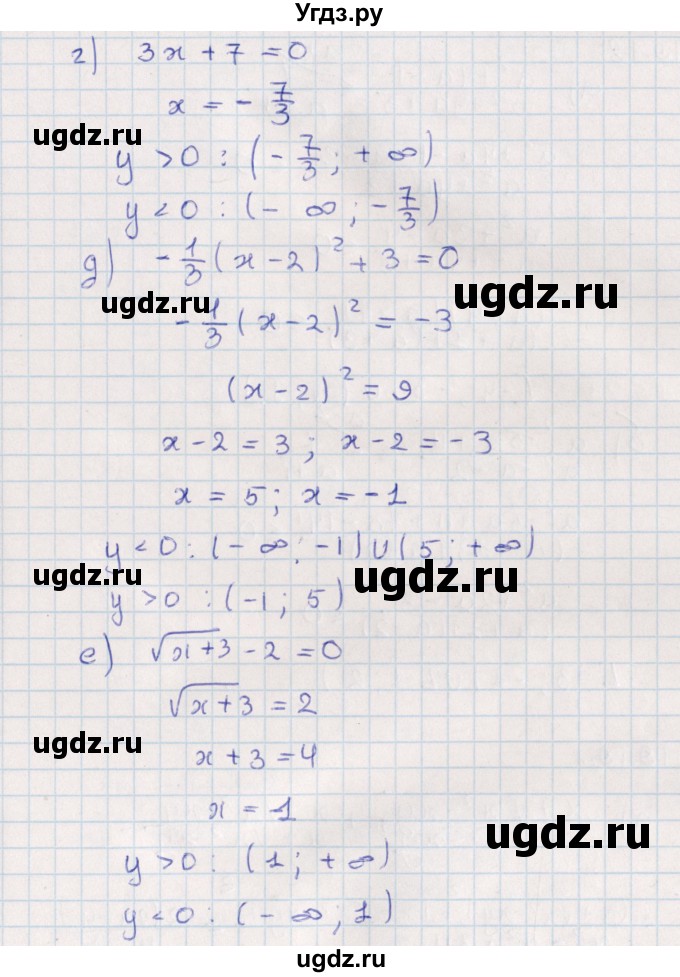 Угдз.ру
г) 3x + 7 = 0
x = - 7/3
ugdz.ru
y > 0 : (- 7/3 ; + ∞)
y < 0 : (- ∞ ; - 7/3)
д) - 1/3 (x - 2)² + 3 = 0
ugdz.ru
- 1/3 (x - 2)² = - 3
(x - 2)² = 9
x - 2 = 3 ; x - 2 = - 3
x = 5 ; x = - 1
y < 0 : (- ∞ ; -1) ∪ (5 ; + ∞)
ugdz.ru
ugdz.ru
y > 0 : (-1 ; 5)
е) √x+3 - 2 = 0
√x+3 = 2
ugdz.ru
x + 3 = 4
x = 1
ugdz.ru
y > 0 : (1 ; + ∞)
y < 0 : (- ∞ ; 1)
ugdz.ru